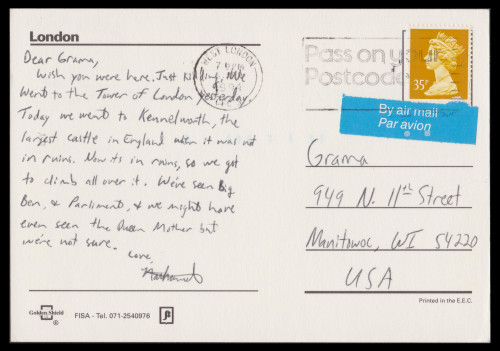 London
Dear Grama,
Wish you were here. Just kidding. We
went to the Tower of London yesterday.
Today we went to Kennelworth, the
largest castle in England when it was not
in ruins. Now its in ruins, so we got
to climb all over it. We've seen Big
Ben, & Parliment, & we might have
even seen the Queen Mother but
we're not sure.
Love,
Nathaniel
WEST LONDON
Pass on your
Postcode
35P
By air mail
Par avion
Grama
949 N. 11th Street
Manitowoc, WI 54220
USA
Printed in the E.E.C.
Golden Shield
®
FISA - Tel. 071-2540976